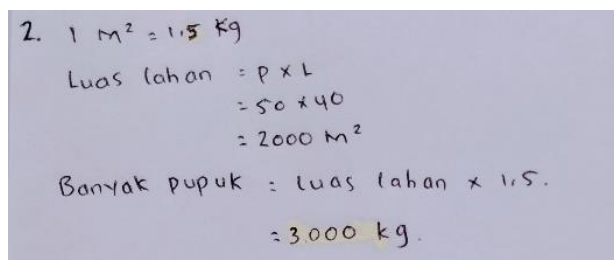 2. 1 m² = 1,5 kg
Luas lahan = P x L
= 50 x 40
= 2000 m²
Banyak pupuk = luas lahan x 1,5.
= 3000 kg.